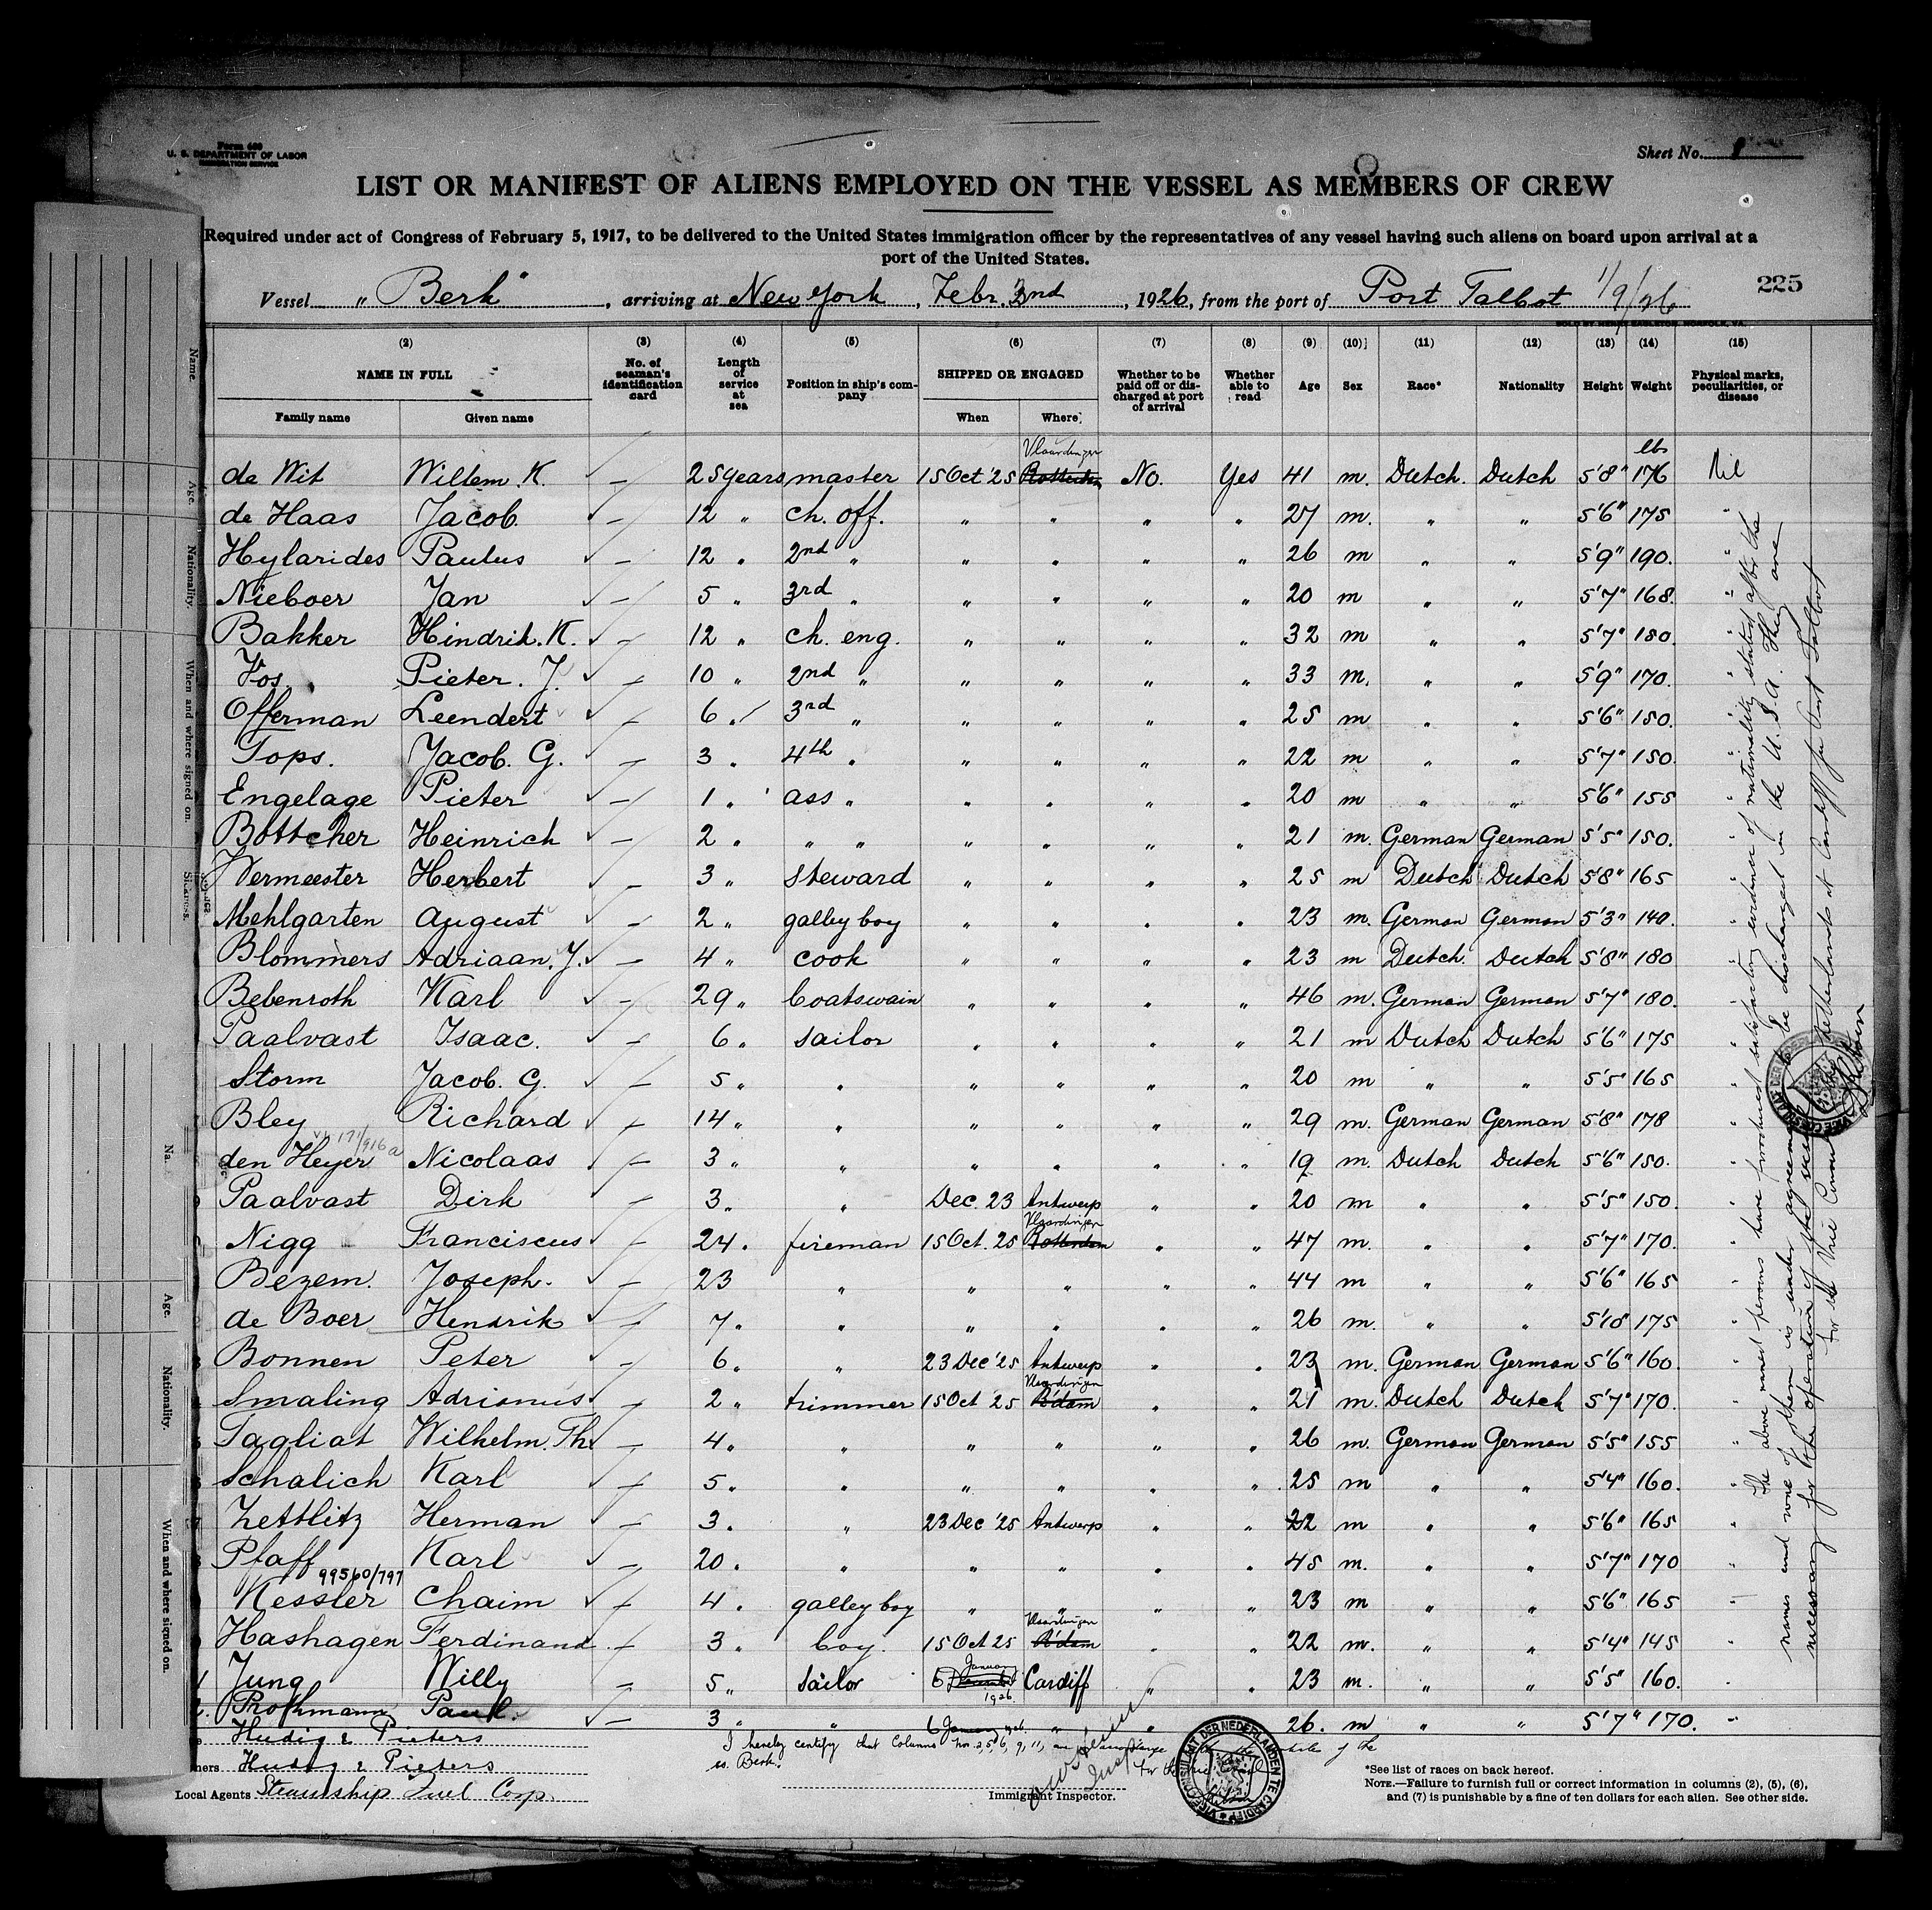 Form 689
U. S. DEPARTMENT OF LABOR
IMMIGRATION SERVICE
Sheet No. 1
LIST OR MANIFEST OF ALIENS EMPLOYED ON THE VESSEL AS MEMBERS OF CREW
Required under act of Congress of February 5, 1917, to be delivered to the United States immigration officer by the representatives of any vessel having such aliens on board upon arrival at a
port of the United States.
Vessel "Berk", arriving at New York, Febr. 2nd, 1926, from the port of Port Talbot 1/9/26
225
(2) (3) (4) (5) (6) (7) (8) (9) (10) (11) (12) (13) (14) (15)
NAME IN FULL No. of seaman's identification card Length of service at sea Position in ship's company SHIPPED OR ENGAGED Whether to be paid off or discharged at port of arrival Whether able to read Age Sex Race* Nationality Height Weight Physical marks, peculiarities, or disease
Family name Given name When Where
Vlaardingen lbs
de Wit Willem K. — 25 years master 15 Oct '25 Rotterdam No. Yes 41 m. Dutch. Dutch 5'8" 176 Nil
de Haas Jacob — 12 " ch. off. " " " " 27 m. " " 5'6" 175 "
Hylarides Paulus — 12 " 2nd " " " " " 26 m " " 5'9" 190. "
Nieboer Jan — 5 " 3rd " " " " " 20 m " " 5'7" 168. "
Bakker Hindrik. K. — 12 " ch. eng. " " " " 32 m " " 5'7" 180. "
Vos Pieter. J. — 10 " 2nd " " " " " 33 m. " " 5'9" 170. "
Offerman Leendert — 6 " 3rd " " " " " 25 m " " 5'6" 150. "
Tops. Jacob. G. — 3 " 4th " " " " " 22 m " " 5'7" 150. "
Engelage Pieter — 1 " ass " " " " " 20 m " " 5'6" 155 "
Bottcher Heinrich — 2 " " " " " " " 21 m. German German 5'5" 150. "
Vermeester Herbert — 3 " steward " " " " 25 m Dutch Dutch 5'8" 165 "
Mehlgarten August — 2 " galley boy " " " " 23 m. German German 5'3" 140. "
Blommers Adriaan. J. — 4 " cook " " " " 23 m Dutch. Dutch 5'8" 180 "
Bebenroth Karl — 29 " boatswain " " " " 46 m. German German 5'7" 180. "
Paalvast Isaac. — 6 " sailor " " " " 21 m Dutch Dutch 5'6" 175 "
Storm Jacob. G. — 5 " " " " " " 20 m " " 5'5" 165 "
Bley Richard — 14 " " " " " " 29 m. German German 5'8" 178 "
den Heyer Nicolaas — 3 " " " " " " 19 m. Dutch Dutch 5'6" 150. "
Paalvast Dirk — 3 " " Dec. 23 Antwerp " " 20 m " " 5'5" 150. "
Vlaardingen
Nigg Franciscus — 24 " fireman 15 Oct. 25 Rotterdam " " 47 m. " " 5'7" 170. "
Bezem. Joseph. — 23 " " " " " 44 m " " 5'6" 165 "
de Boer Hendrik — 7 " " " " " " 26 m. " " 5'10" 175 "
Bonnen Peter — 6 " " 23 Dec '25 Antwerp " " 23 m. German German 5'6" 160. "
Vlaardingen
Smaling Adrianus — 2 " trimmer 15 Oct 25 R'dam " " 21 m. Dutch Dutch 5'7" 170. "
Tagliat Wilhelm. Th. — 4 " " " " " " 26 m. German German 5'5" 155 "
Schalich Karl — 5 " " " " " " 25 m " " 5'4" 160. "
Zettlitz Herman — 3 " " 23 Dec '25 Antwerp " " 22 m " " 5'6" 165 "
Pfaff Karl — 20 " " " " " " 45 m. " " 5'7" 170 "
99560/797
Kessler Chaim — 4 " galley boy " " " " 23 m " " 5'6" 165 "
Vlaardingen
Hashagen Ferdinand — 3 " boy. 15 Oct 25 R'dam " " 22 m. " " 5'4" 145 "
Jung Willy — 5 " sailor 6 January 1926 Cardiff " " 23 m. " " 5'5" 160. "
Prothmann Paul. — 3 " " 6 January 1926 " " 26. m " " 5'7" 170. "
Hudig & Pieters
Owners Hudig & Pieters
Local Agents Steamship Fuel Corp.
I hereby certify that Columns No. 2, 5, 6, 9, 11, are in accordance with the articles of the
ss. Berk.
For the Vice Consul
Immigrant Inspector.
VICE CONSULAAT DER NEDERLANDEN TE CARDIFF
*See list of races on back hereof.
NOTE.—Failure to furnish full or correct information in columns (2), (5), (6),
and (7) is punishable by a fine of ten dollars for each alien. See other side.
The above named persons have produced satisfactory evidence of nationality stated after the
names and none of them is under agreement to be discharged in the U.S.A. They are
necessary for the operation of the vessel
For the Vice Consul Netherlands at Cardiff for Port Talbot
Name.
Age.
Nationality.
When and where signed on.
Na.
Age.
Nationality.
When and where signed on.